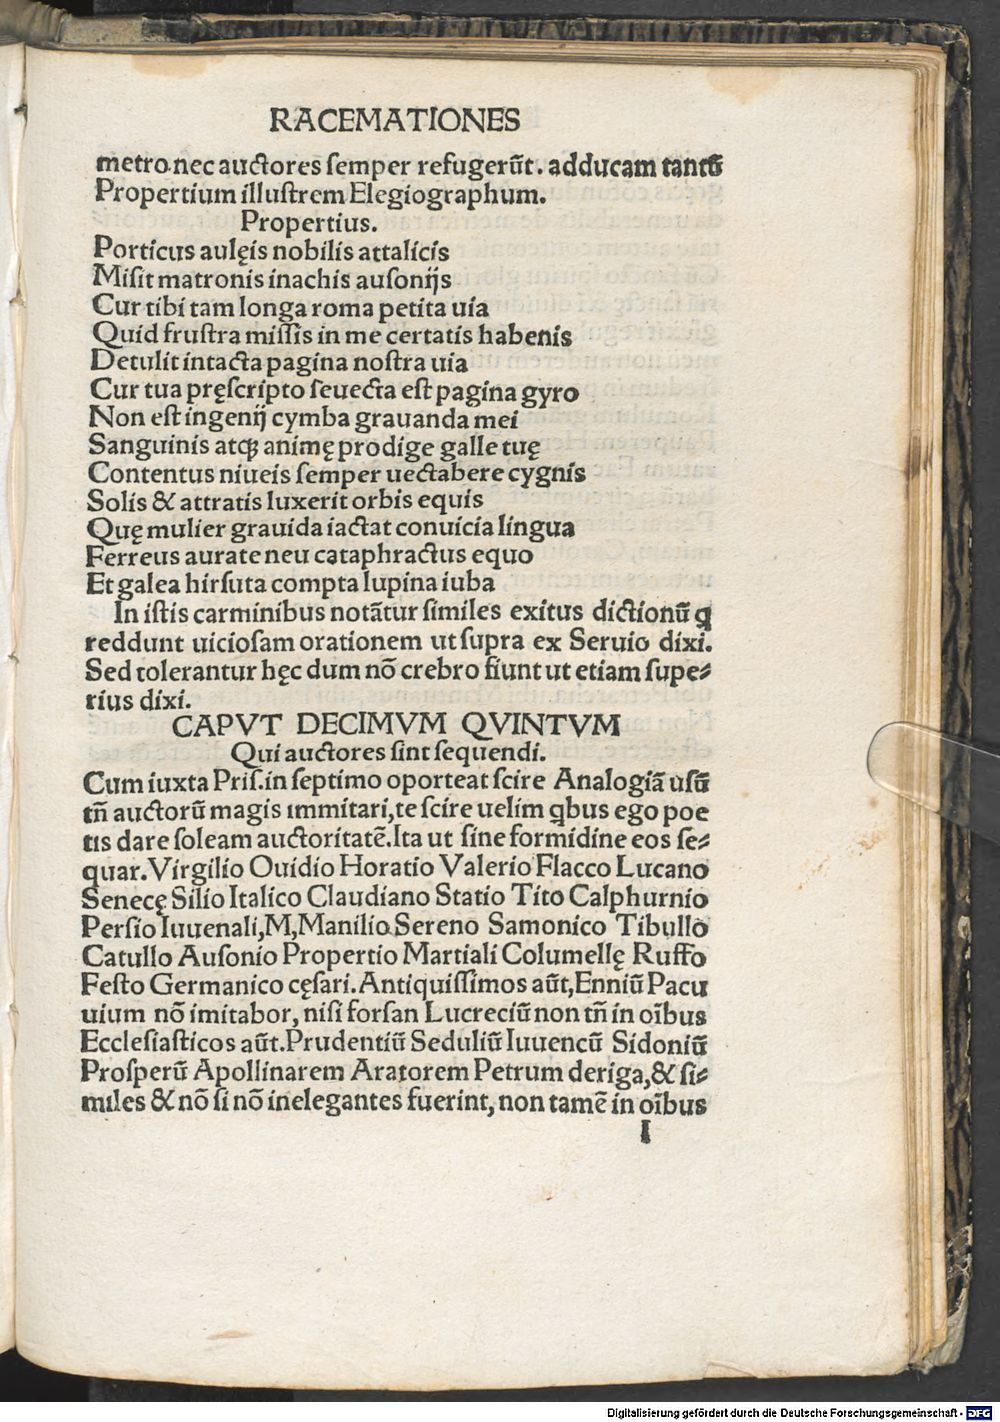 RACEMATIONES
metro.nec auctores semper refugerūt. adducam tantū
Propertium illustrem Elegiographum.
Propertius.
Porticus aulęis nobilis attalicis
Misit matronis inachis ausonijs
Cur tibi tam longa roma petita uia
Quid frustra missis in me certatis habenis
Detulit intacta pagina nostra uia
Cur tua pręscripto seuecta est pagina gyro
Non est ingenij cymba grauanda mei
Sanguinis atqꝫ animę prodige galle tuę
Contentus niueis semper uectabere cygnis
Solis & attratis luxerit orbis equis
Quę mulier grauida iactat conuicia lingua
Ferreus aurate neu cataphractus equo
Et galea hirsuta compta lupina iuba
In istis carminibus notātur similes exitus dictionū q̄
reddunt uiciosam orationem ut supra ex Seruio dixi.
Sed tolerantur hęc dum nō crebro fiunt ut etiam supe⸗
rius dixi.
CAPVT DECIMVM QVINTVM
Qui auctores sint sequendi.
Cum iuxta Pris.in septimo oporteat scire Analogiā usū
tn̄ auctorū magis immitari,te scire uelim q̄bus ego poe
tis dare soleam auctoritatē.Ita ut sine formidine eos se⸗
quar.Virgilio Ouidio Horatio Valerio Flacco Lucano
Senecę Silio Italico Claudiano Statio Tito Calphurnio
Persio Iuuenali,M,Manilio.Sereno Samonico Tibullo
Catullo Ausonio Propertio Martiali Columellę Ruffo
Festo Germanico cęsari.Antiquissimos aūt,Enniū Pacu
uium nō imitabor, nisi forsan Lucreciū non tn̄ in oībus
Ecclesiasticos aūt.Prudentiū Seduliū Iuuencū Sidoniū
Prosperū Apollinarem Aratorem Petrum deriga,& si⸗
miles & nō si nō inelegantes fuerint, non tamē in oībus
I
Digitalisierung gefördert durch die Deutsche Forschungsgemeinschaft - DFG